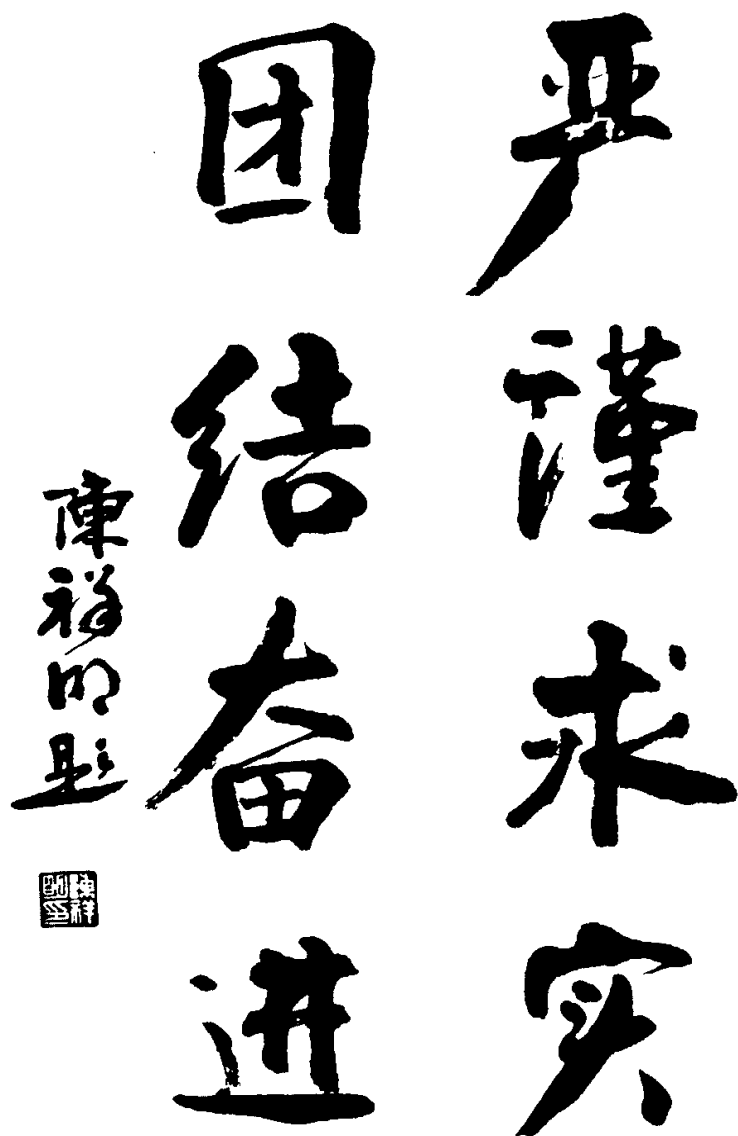 严谨求实
团结奋进
陳祥明題
陳祥明印